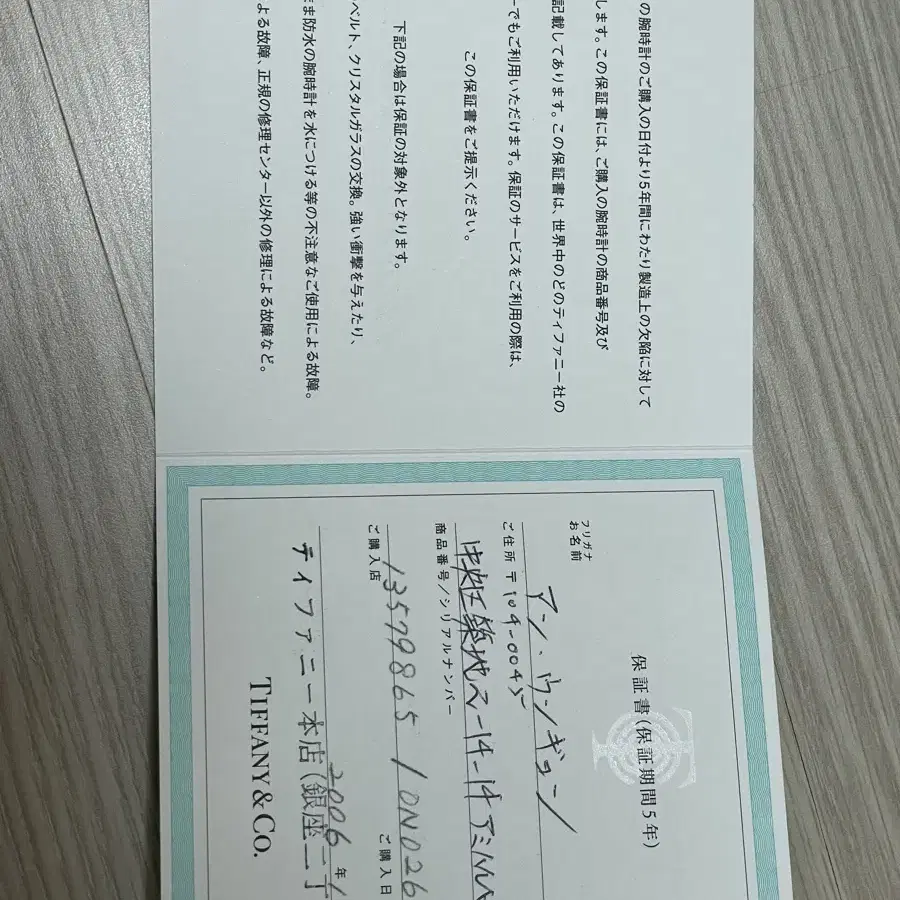 の腕時計のご購入の日付より5年間にわたり製造上の欠陥に対して
します。この保証書には、ご購入の腕時計の商品番号及び
記載してあります。この保証書は、世界中のどのティファニー社の
ーでもご利用いただけます。保証のサービスをご利用の際は、
この保証書をご提示ください。
下記の場合は保証の対象外となります。
ベルト、クリスタルガラスの交換。強い衝撃を与えたり、
ま防水の腕時計を水につける等の不注意なご使用による故障。
よる故障、正規の修理センター以外の修理による故障など。
保証書(保証期間5年)
フリガナ
お名前
アン.ウンギョン
ご住所 〒104-0045
中央区築地2-14-14
商品番号/シリアルナンバー
13579865 / 0N026
ご購入店
ご購入日
2006年
ティファニー本店(銀座二丁
TIFFANY&CO.